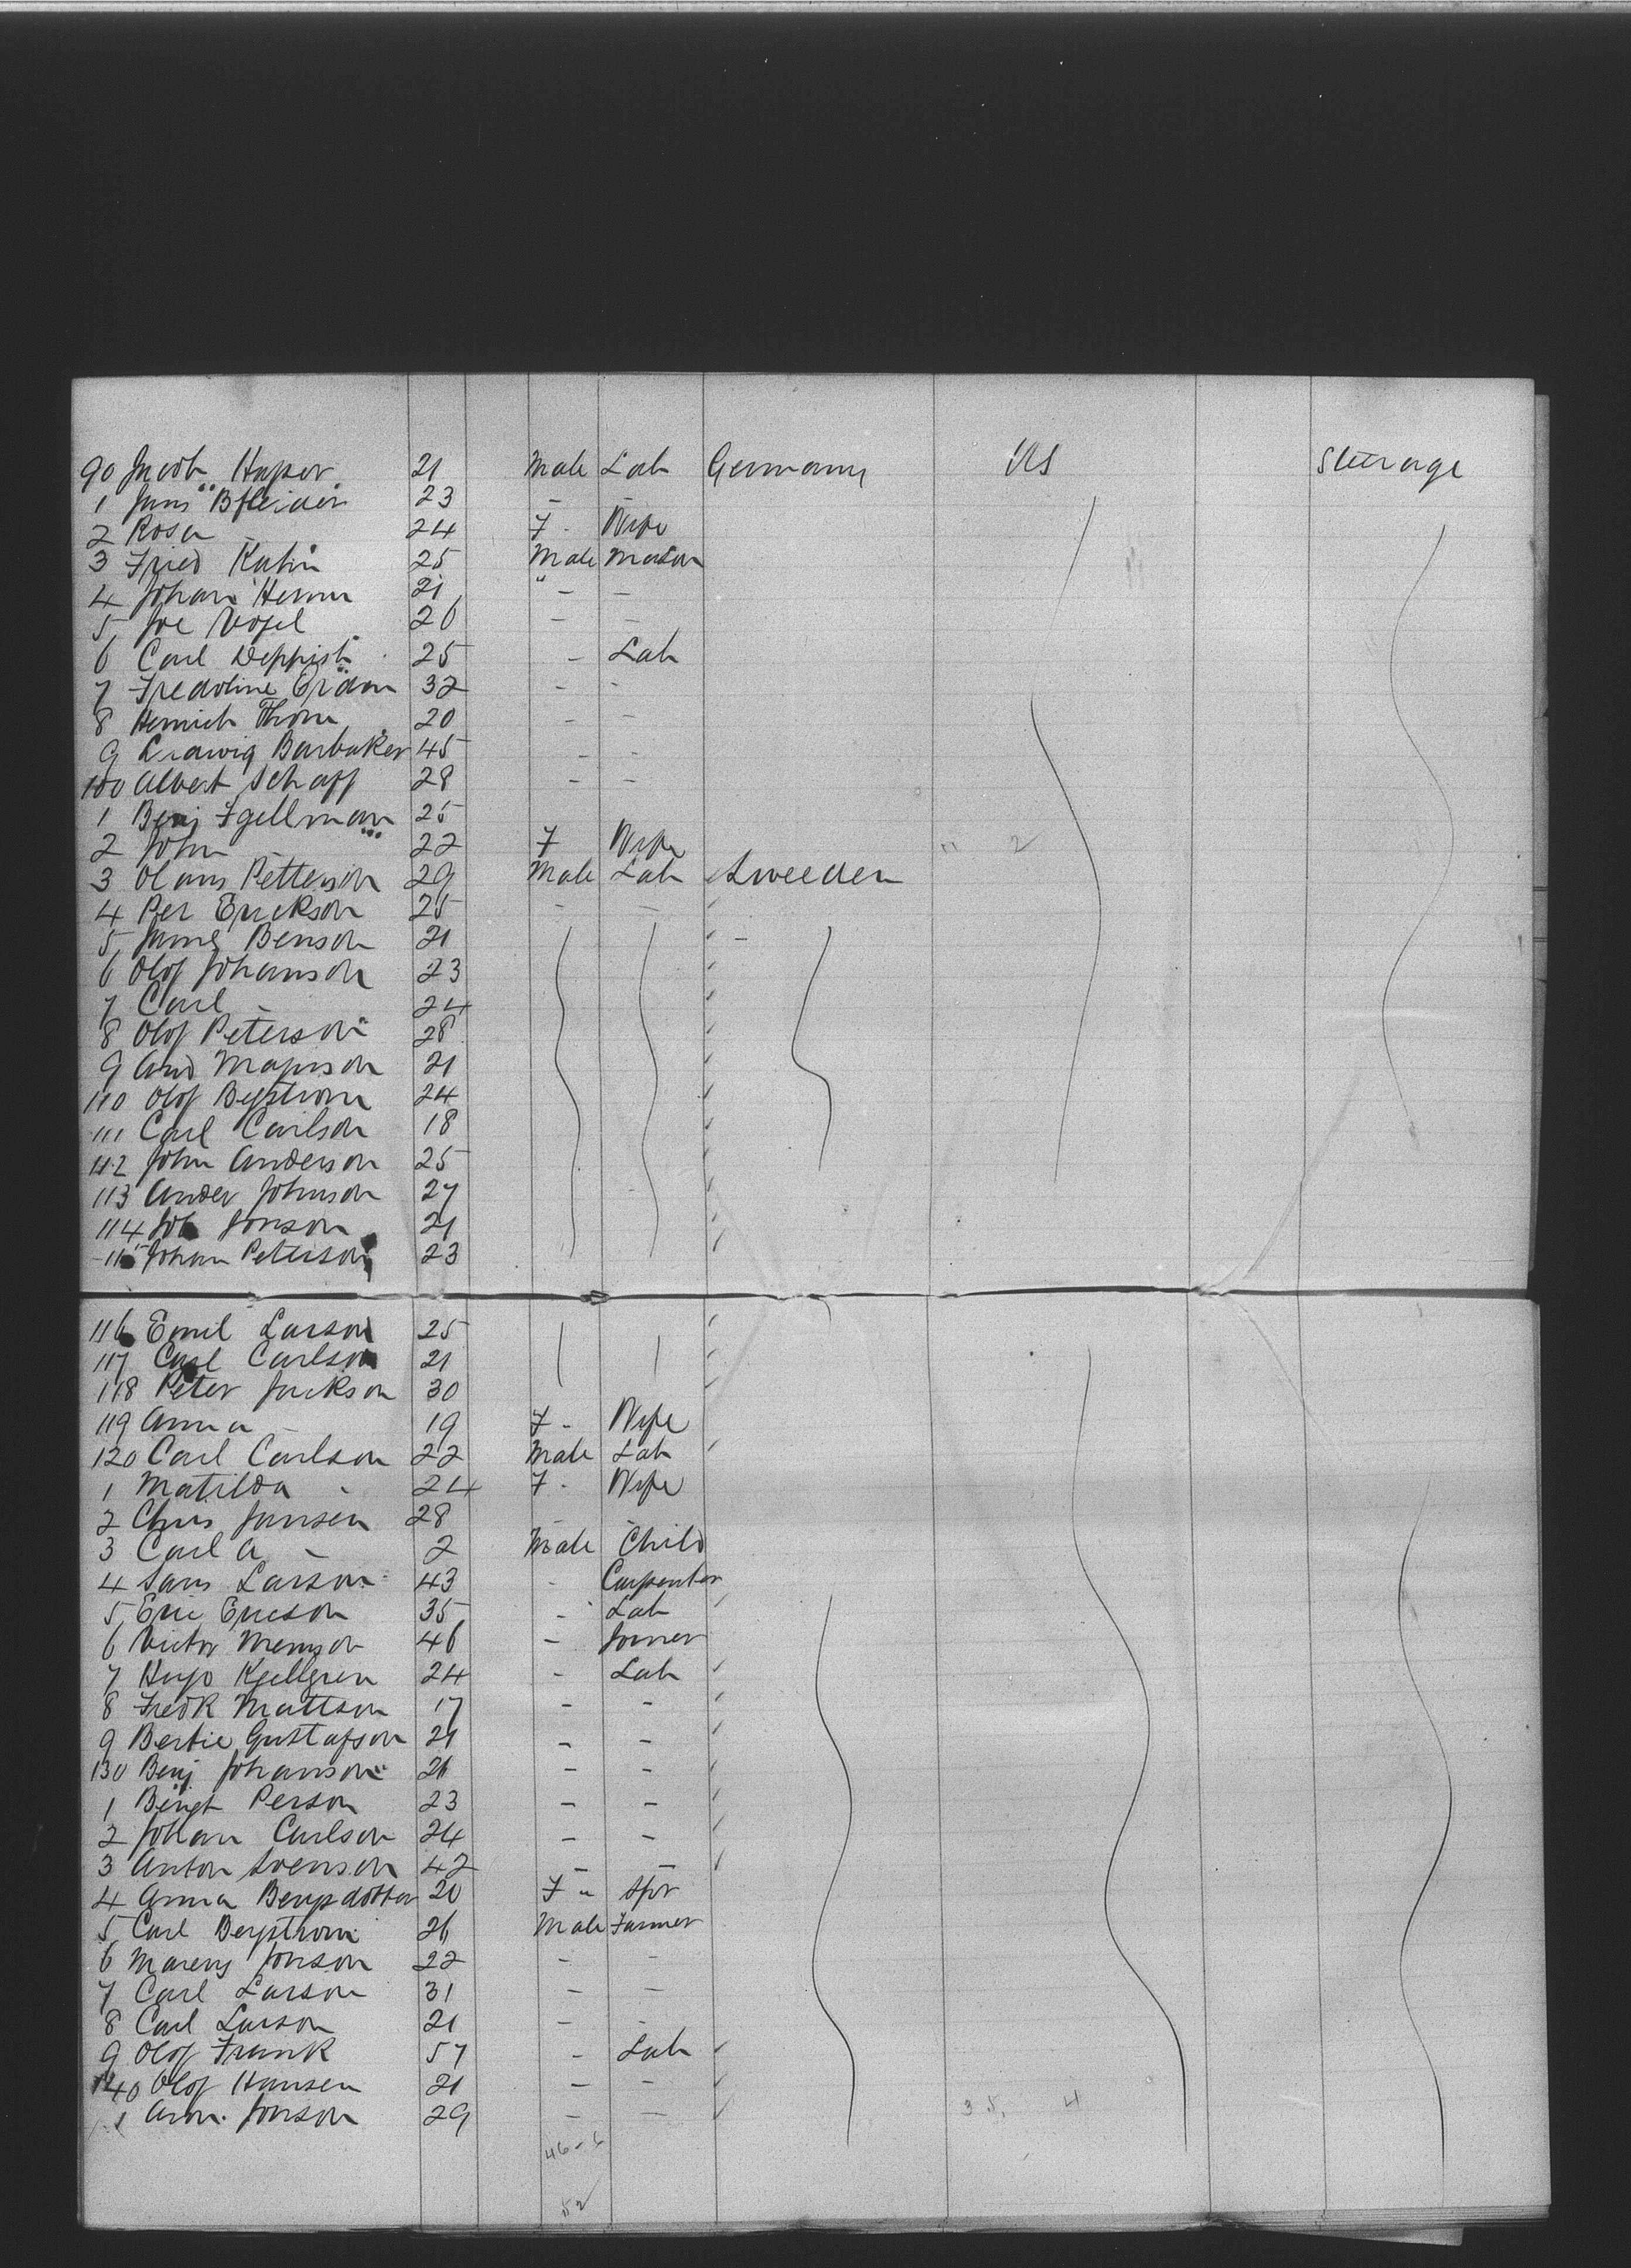 90 Jacob Haper 21 Male Lab Germany US Steerage
1 Jens Bfleider 23 - -
2 Rosa - 24 F - Wife
3 Fried Kuhn 25 Male Mason
4 Johan Hermn 21 " - -
5 Joe Vogel 26 - -
6 Carl Deppish 25 - Lab
7 Fredoline Erdan 32 - -
8 Henrich Thom 20 - -
9 Ludwig Barbaker 45 - -
100 Albert Schaff 28 - -
1 Benj Fgellman 25
2 John - 22 F Wife 11 2
3 Olaus Petterson 29 Male Lab Sweeden
4 Per Erickson 25 - -
5 James Benson 21 -
6 Olof Johanson 23
7 Carl - 24
8 Olof Peterson 28
9 And Magnson 21
110 Olof Bystrom 24
111 Carl Carlson 18
112 John Anderson 25
113 Ander Johnson 27
114 Job Jonson 21
115 Johan Peterson 23
116 Emil Larson 25
117 Carl Carlson 21
118 Peter Jackson 30
119 Anna - 19 F - Wife
120 Carl Carlson 22 Male Lab
1 Matilda - 24 F - Wife
2 Chris Jansen 28 - -
3 Carl A - 2 Male Child
4 Lars Larson 43 - Carpenter
5 Eric Ericson 35 - Lab
6 Victor 46 - Joiner
7 Hugo Kjellgren 24 - Lab
8 Fredk Mattson 17 - -
9 Bertie Gustafson 21 - -
130 Benj Johanson 21 - -
1 Bengt Person 23 - -
2 Johan Carlson 24 - -
3 Anton Svenson 42 - -
4 Anna Bengsdotter 20 F " Spr
5 Carl Bergstrom 26 Male Farmer
6 Marcus Jonson 22 - -
7 Carl Larson 31 - -
8 Carl Larson 21 - -
9 Olof Frank 57 - Lab
140 Olof Hansen 21 - -
1 Aron Jonson 29 - - 35, 4
46-6
52